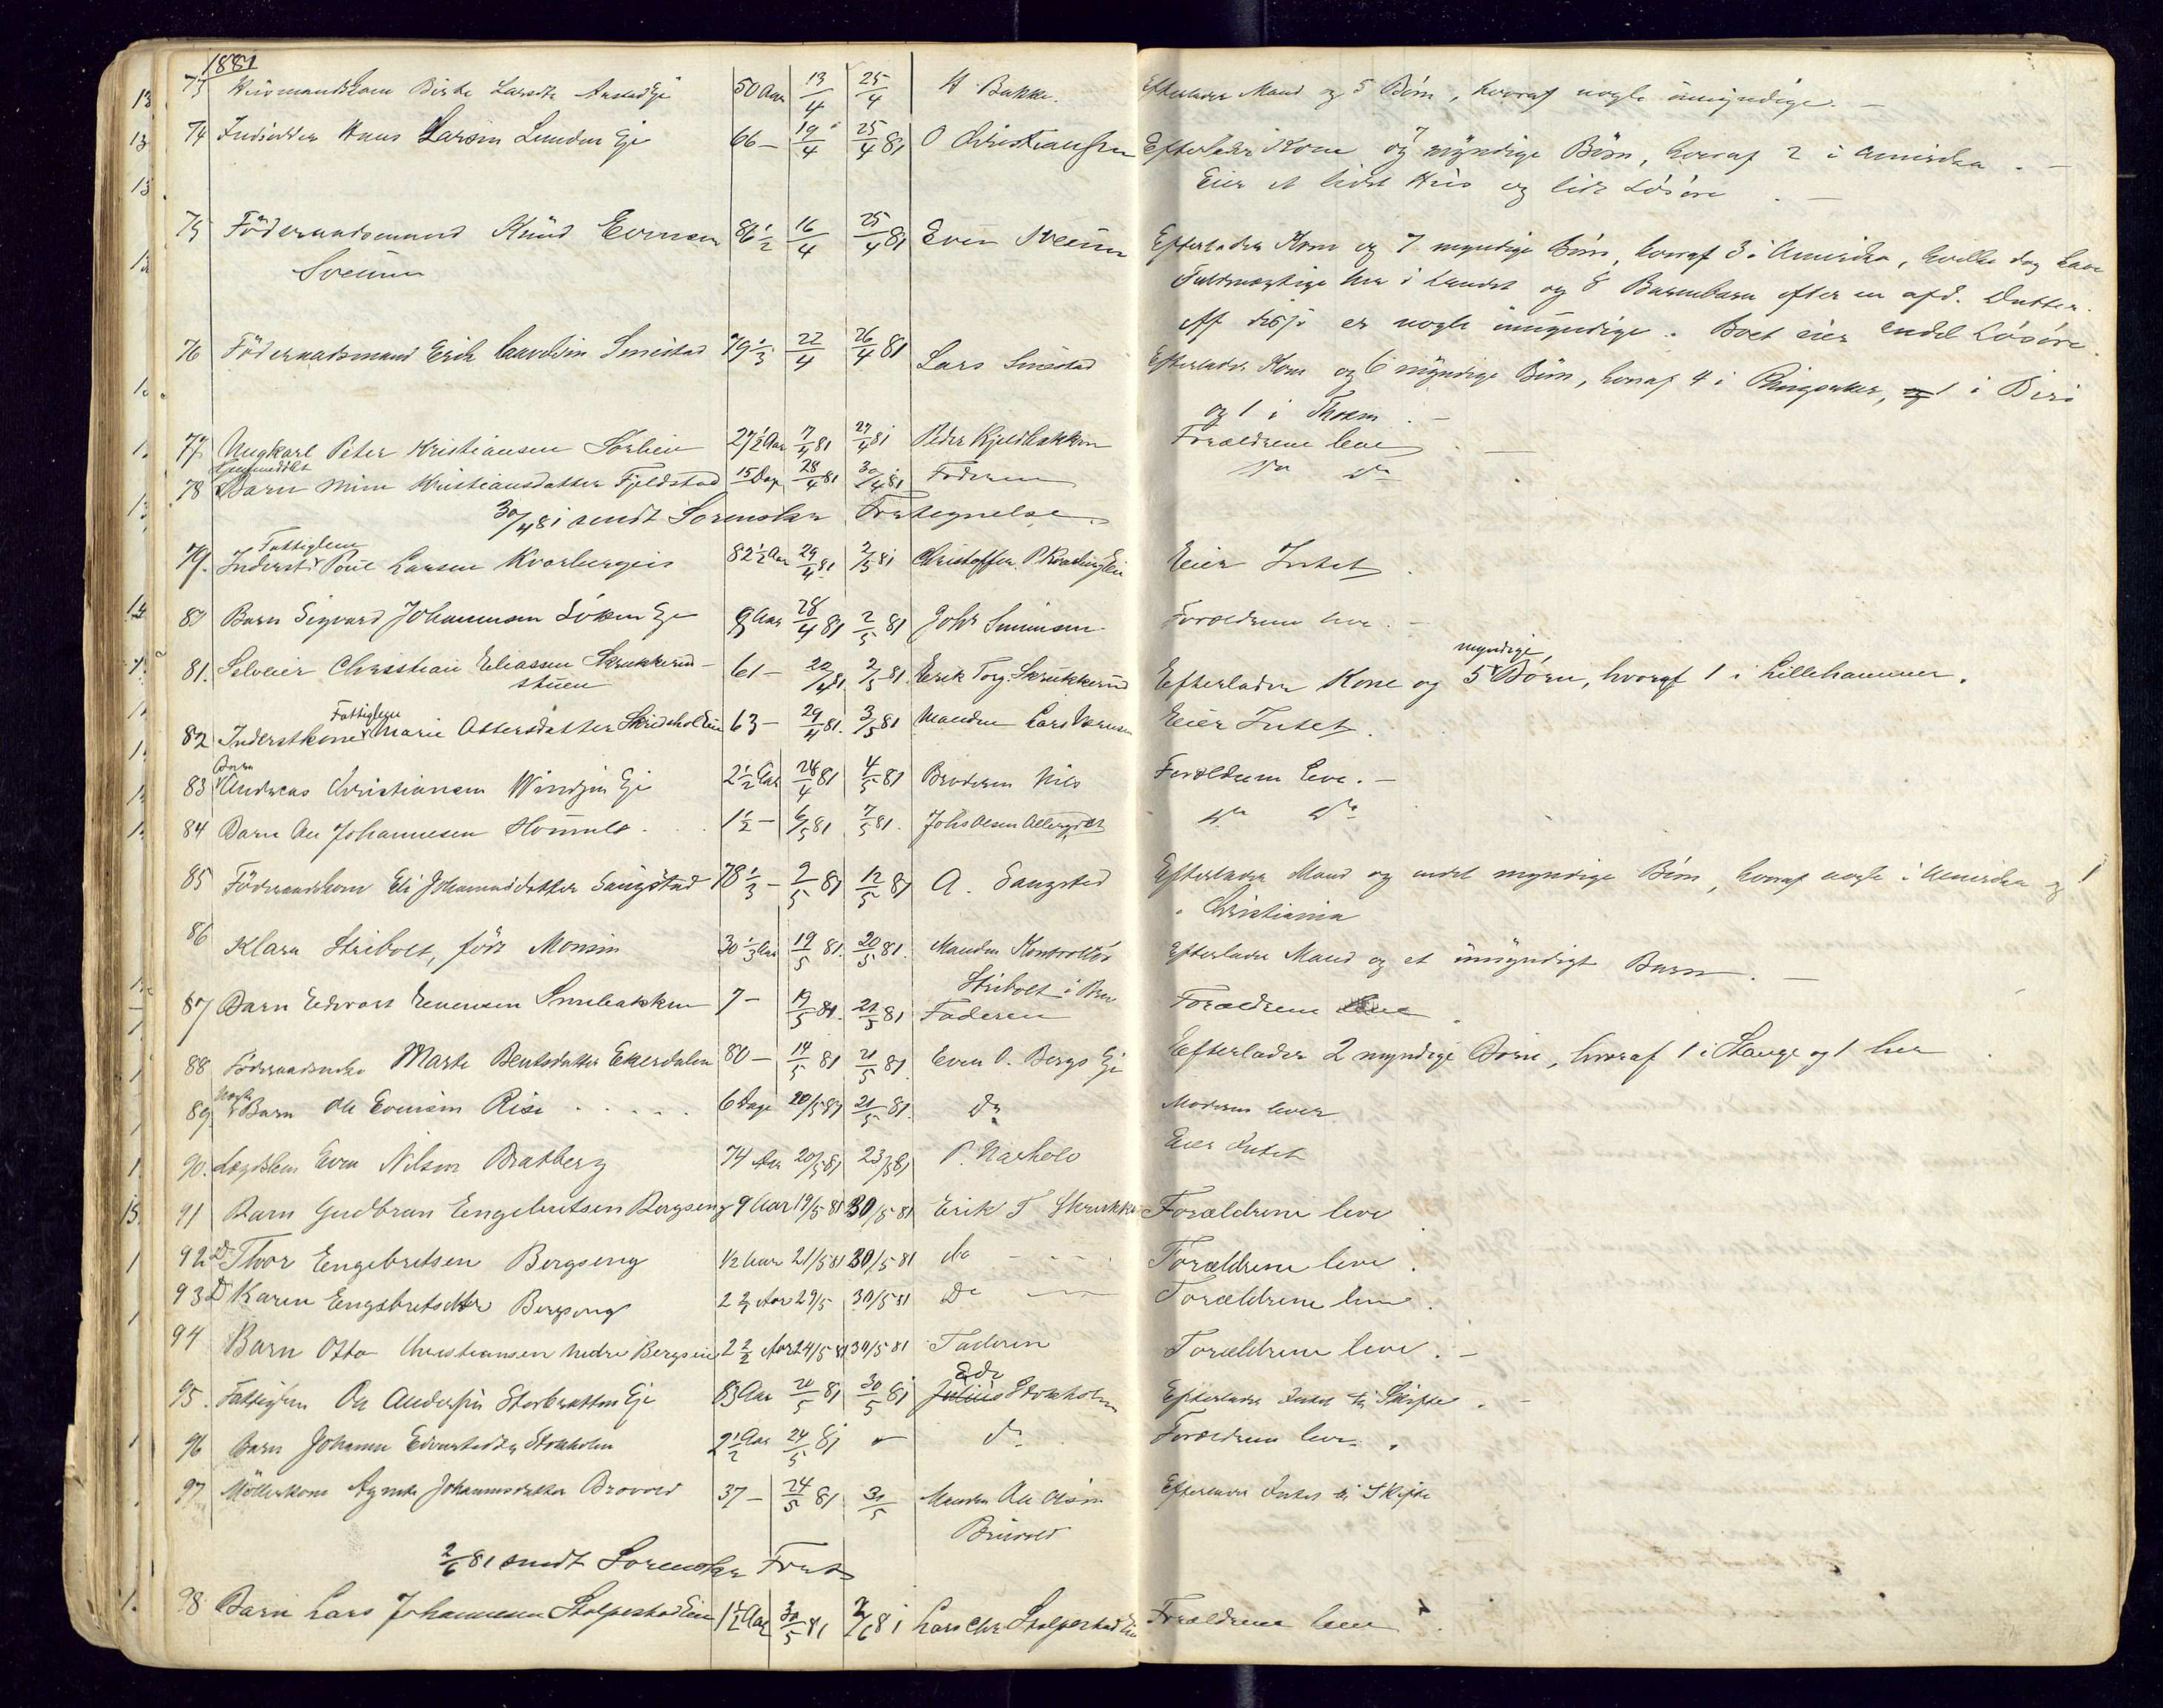 1881
73 Husmandskone Birthe Larsdtr Eje 50 Aar 13/4 25/4 H Bakke. Efterlader Mand og 5 Børn, hvoraf nogle umyndige. —
74 Inderst Hans Larsen Lunden Eje 66 — 19/4 25/4 81 O Christiansen Efterlader Kone og 7 myndige Børn, hvoraf 2 i Amerika. —
Eier et lidet Hus og lidt Løsøre. —
75 Föderaadsmand Knud Evensen 86 1/2 16/4 25/4 81 Even Sveum Efterlader Kone og 7 myndige Børn, hvoraf 3 i Amerika, hvilke dog have
Sveum Fuldmægtige her i Landet og 8 Barnebørn efter en afd. Datter.
Af disse er nogle umyndige. Boet eier endel Løsøre.
76 Föderaadsmand Erik Smestad 79 1/3 22/4 26/4 81 Lars Smestad Efterlader Kone og 6 myndige Børn, hvoraf 4 i Ringsaker, 1 i Biri
og 1 i —
77 Ungkarl Peter Kristiansen Sorlien 27 1/2 Aar 7/4 81 27/4 81 Peder Kjeldbakken Forældrene leve —
78 Barn Kristiansdatter Fjeldstad 15 Dage 28/4 81 30/4 81 Faderen do do
30/4 81 sendt Sorensk Fortegnelse
Fattiglem
79. Inderst Poul Larsen Kvarbergeie 82 1/2 Aar 29/4 81 2/5 81 Christoffer P. Eier Intet.
80 Barn Sigvard Johannesen Löken Eje 9 Aar 28/4 81 2/5 81 Johs Simensen Forældrene leve. —
myndige,
81. Selveier Christian Eliassen Skrukkerud- 61 — 22/4 81. 2/5 81. Erik Torg. Skrukkerud Efterlader Kone og 5 Børn, hvoraf 1 i Lillehammer.
stuen
Fattiglem
82 Inderstkone Marie Ottersdatter 63 — 29/4 81. 3/5 81 Manden Lars Eier Intet.
Barn
83 Andreas Christiansen Windju Eje 2 1/2 Aar 28/4 81 4/5 81 Broderen Nils Forældrene leve. —
84 Barn Johannesen 1 1/2 — 6/5 81 7/5 81. Johs Olsen do do
85 Föderaadskone Eli Johannesdatter Saugstad 78 1/3 — 2/5 81 12/5 81 A. Saugstad Efterlader Mand og endel myndige Børn, hvoraf nogle i Amerika og 1
i Christiania
86 Klara Stribolt, född Monsen 30 1/3 Aar 19/5 81. 20/5 81. Manden Kontrollör Efterlader Mand og et umyndigt Barn. —
Stribolt i Bru
87 Barn Edvart Evensen Smebakken 7 — 19/5 81. 21/5 81 Faderen Forældrene leve.
88 Marte Bentsdatter Ekerdalen 80 — 14/5 81 21/5 81 Even O. Bergs Eje Efterlader 2 myndige Børn, hvoraf 1 i Stange og 1 her
89. Barn Ole Evensen Rise . . . . 6 Dage 20/5 81 21/5 81. do Moderen lever
90. Lægdslem Even Nilsen Bratberg 74 Aar 20/5 81 23/5 81 P. Narholo Eier Intet
91 Barn Gudbran Engebretsen Bergseng 9 Aar 19/5 81 30/5 81 Erik T Skrukke Forældrene leve
92 Do Thor Engebretsen Bergseng 1/2 Aar 21/5 81 30/5 81 do — Forældrene leve.
93 Do Karen Engebretsdtr Bergseng 2 Aar 29/5 30/5 81 Do — Forældrene leve.
94 Barn Otto Christiansen nedre Bergseng 2 Aar 24/5 81 30/5 81 Faderen Forældrene leve. —
95. Fattiglem Ole Andersen Storbratten Eje 83 Aar 20/5 81 30/5 81 Julius Stokholm Efterlader Intet til Skifte. —
96 Barn Johanne Edvartsdtr Stokholm 2 1/2 Aar 24/5 81 do Forældrene leve.
97 Möllerkone Agnethe Johannesdatter Brovold 37 — 24/5 81 31/5 Manden Ole Olsen Efterlader Intet til Skifte
Bruvold
2/6 81 sendt Sorensk Fort
98 Barn Lars Johannesen Stolpestad Eie 1 1/2 Aar 30/5 81 2/6 81 Lars Chr Stolpestad Eie Forældrene leve.